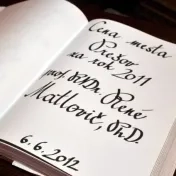 Cena mesta
Prešov
za rok 2011
prof. PhDr. René
Matlovič, PhD.
6. 6. 2012